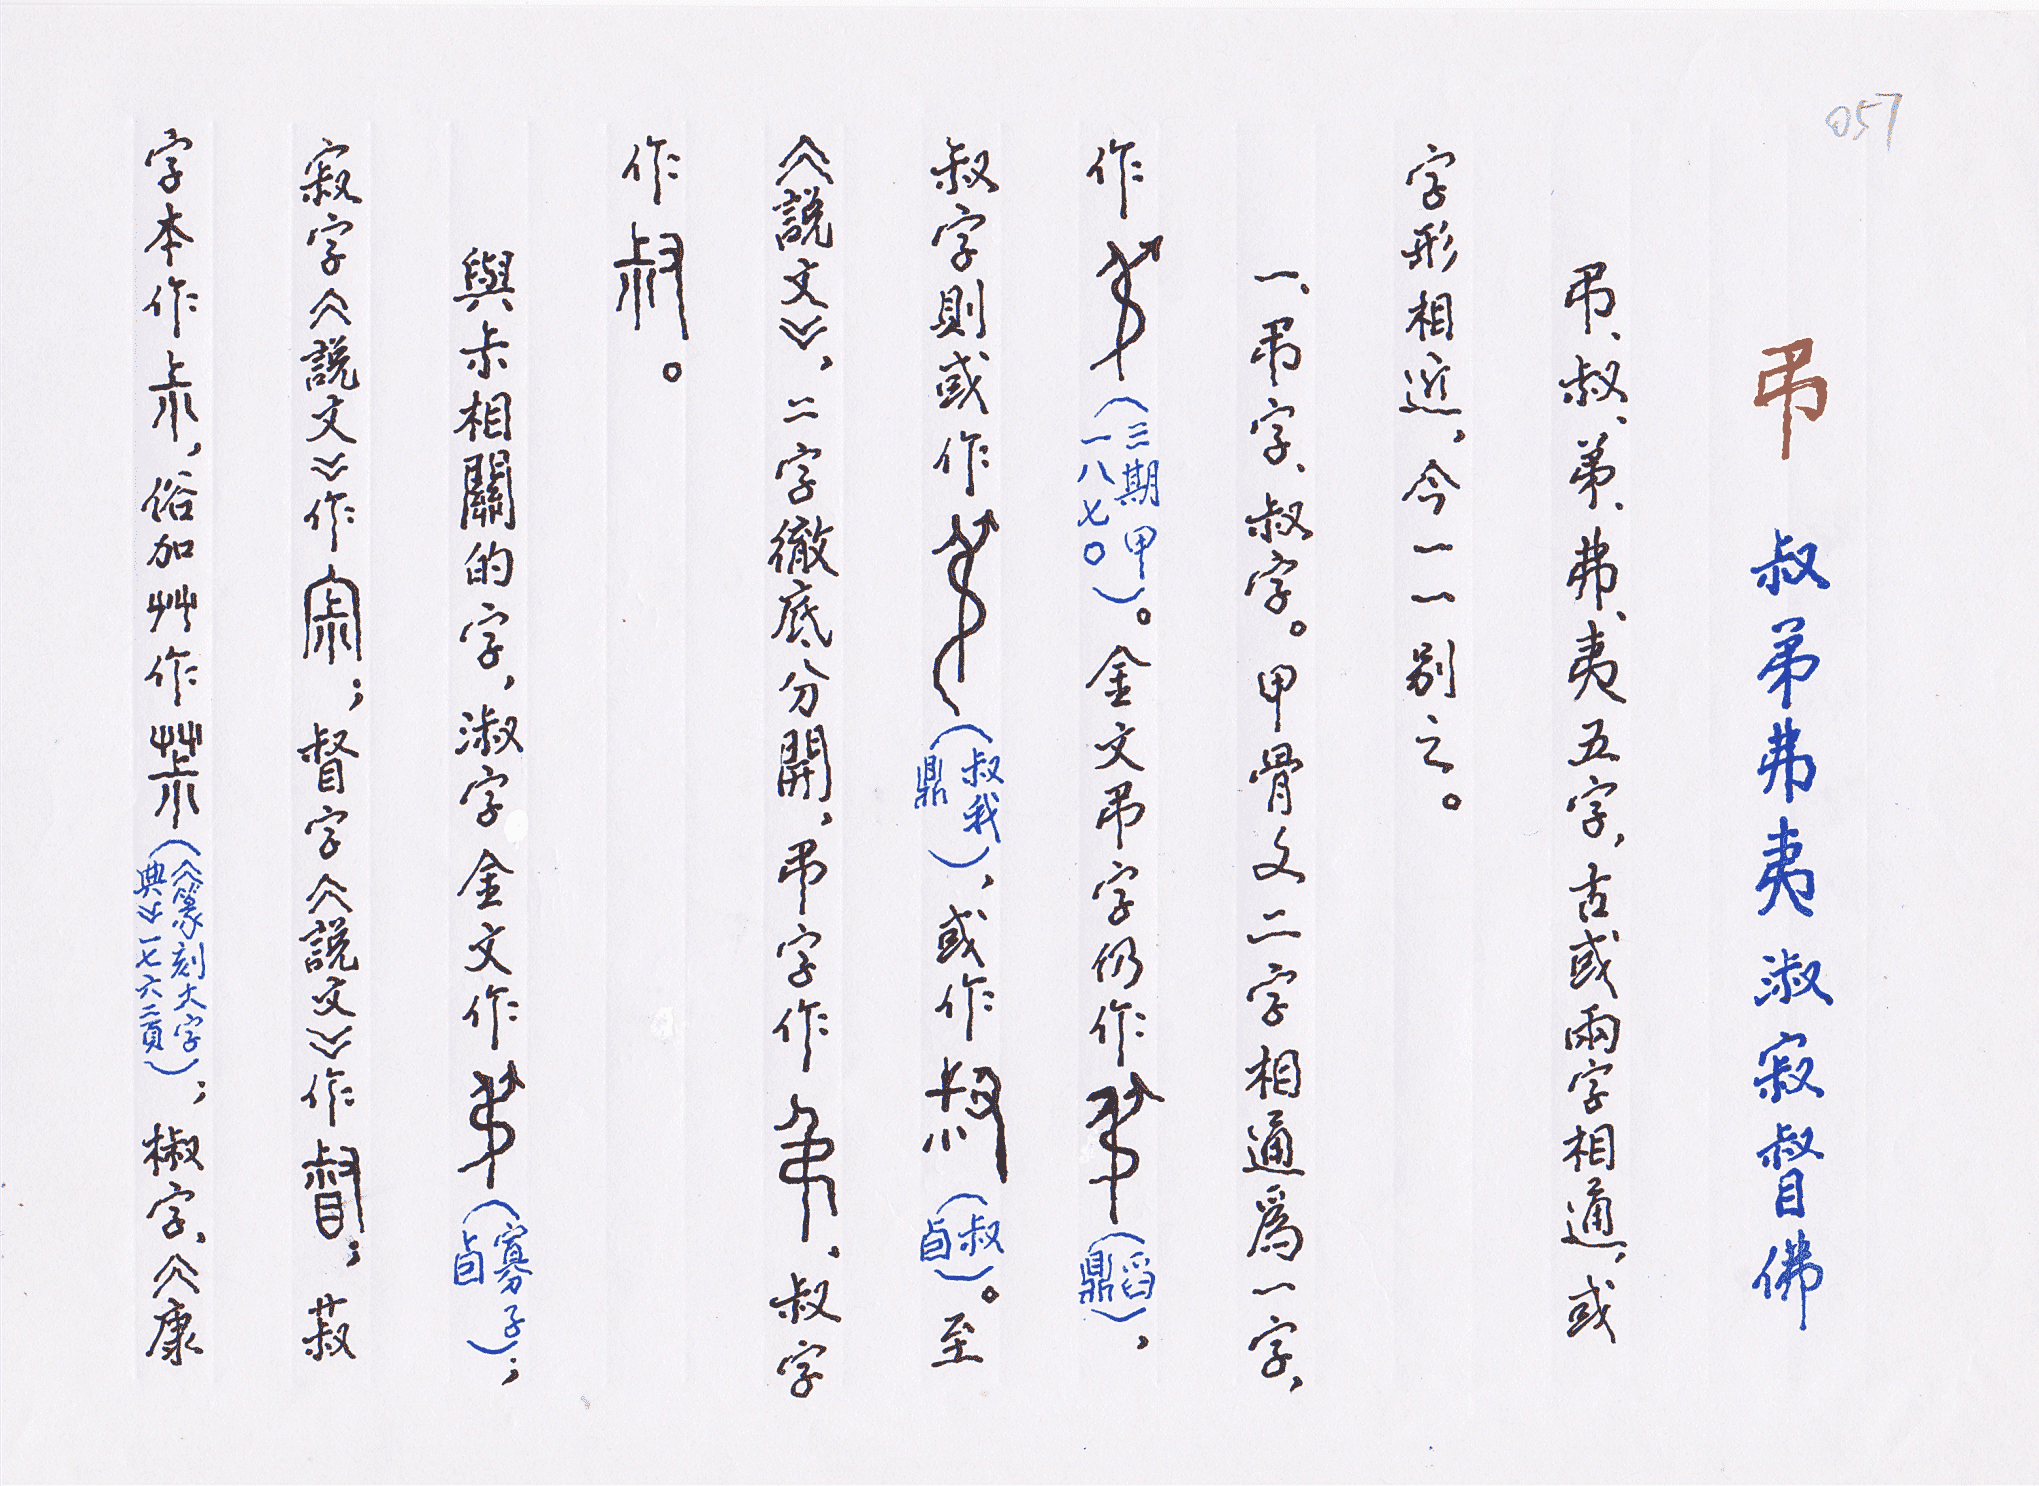 057
弔 叔弟弗夷淑寂督佛
弔、叔、弟、弗、夷五字，古或兩字相通，或
字形相近，今一一別之。
一、弔字、叔字。甲骨文二字相通爲一字，
作（三期甲一八七〇）。金文弔字仍作（舀鼎），
叔字則或作（叔我鼎），或作（叔卣）。至
《說文》，二字徹底分開，弔字作，叔字
作。
與尗相關的字，淑字金文作（寡子卣）；
寂字《說文》作；督字《說文》作；菽
字本作尗，俗加艸作（《篆刻大字典》一七六二頁）；椒字，《康